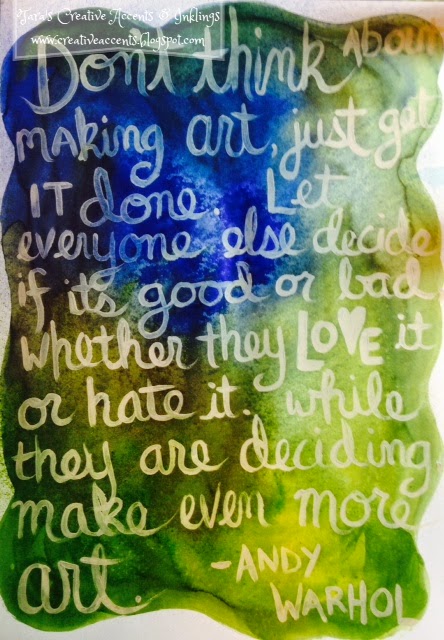 Tara's Creative Accents & Inklings
www.creativeaccents.blogspot.com
Don't think About
making art, just get
IT done. Let
everyone else decide
if it's good or bad
whether they LOVE it
or hate it. while
they are deciding
make even more
art. -ANDY
WARHOL